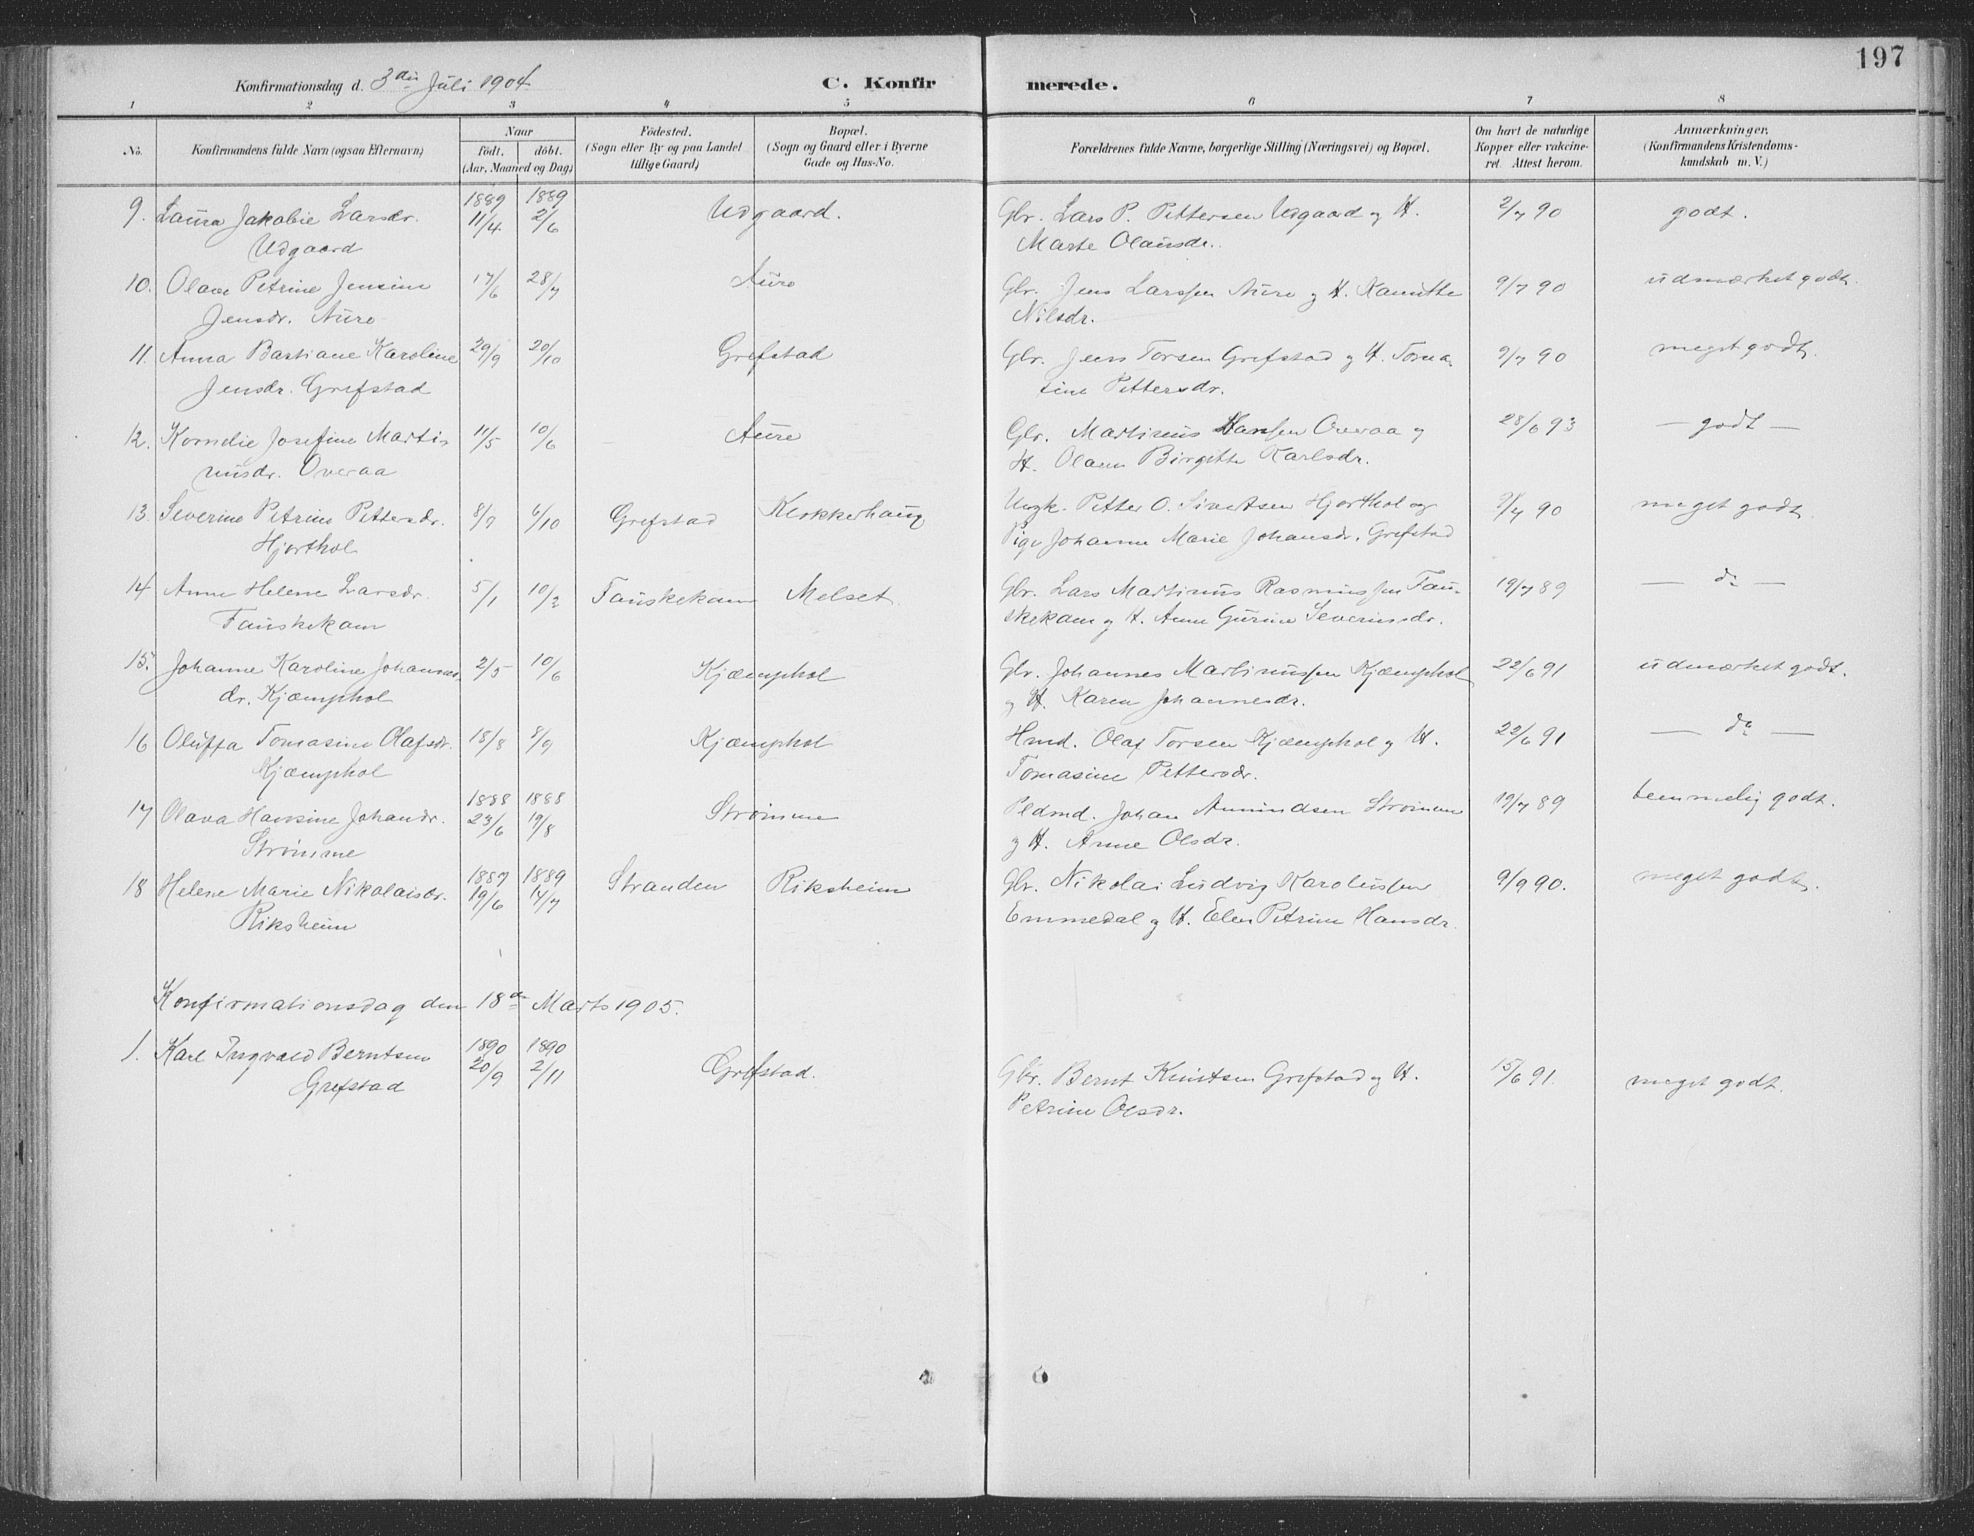 197
Konfirmationsdag d. 3die Juli 1904. C. Konfirmerede.
1 2 3 4 5 6 7 8
No. Konfirmandens fulde Navn (ogsaa Efternavn) Naar födt. döbt. (Aar, Maaned og Dag) Födested. (Sogn eller By og paa Landet tillige Gaard) Bopæl. (Sogn og Gaard eller i Byerne Gade og Hus-No. Forældrenes fulde Navne, borgerlige Stilling (Næringsvei) og Bopæl. Om havt de naturlige Kopper eller vakcineret. Attest herom. Anmærkninger. (Konfirmandens Kristendomskundskab m. V.)
9. Laura Jakobie Larsdr. 1889 11/4 1889 2/6 Udgaard. Gbr. Lars P. Pettersen Udgaard og H. 2/7 90 godt.
Udgaard Marte Olausdr.
10. Olave Petrine Jensine 17/6 28/7 Aure Gbr. Jens Larssen Aure og H. Kanutte 9/7 90 udmærket godt.
Jensdr. Aure Nilsdr.
11. Anna Bastiane Karoline 29/9 20/10 Grefstad Gbr. Jens Torsen Grefstad og H. Toma- 9/7 90 meget godt.
Jensdr. Grefstad sine Pettersdr.
12. Kornelie Josefine Marti- 11/5 10/6 Aure Gbr. Martinus Hanssen Overaa og 28/6 93 — godt —
nusdr. Overaa H. Olave Birgitte Karlsdr.
13. Severine Petrine Pettersdr. 8/7 6/10 Grefstad Klokkerhaug Ungk. Petter O. Sivertsen Hjorthol og 9/7 90 meget godt
Hjorthol Pige Johanne Marie Johansdr. Grefstad
14 Anne Helene Larsdr. 5/1 10/2 Fauskekam Melset. Gbr. Lars Martinus Rasmussen Fau- 19/7 89 — do —
Fauskekam skekam og H. Anne Gurine Severinsdr.
15. Johanne Karoline Johannes- 2/5 10/6 Kjæmphol Gbr. Johannes Martinussen Kjæmphol 22/6 91 udmærket godt.
dr. Kjæmphol og H. Karen Johannesdr.
16 Oluffa Tomasine Olafsdr. 18/8 8/9 Kjæmphol Hmd. Olaf Torsen Kjæmphol og H. 22/6 91 — do —
Kjæmphol Tomasine Pettersdr.
17 Olava Hansine Johandr. 1888 23/6 1888 19/8 Strømme Pldmd. Johan Amundsen Strømme 19/7 89 temmelig godt.
Strømme og H. Anne Olsdr.
18 Helene Marie Nikolaisdr. 1887 19/6 1889 14/7 Stranden Riksheim Gbr. Nikolai Ludvig Karolussen 9/9 90. meget godt.
Riksheim Emmedal og H. Elen Petrine Hansdr.
Konfirmationsdag den 18de Marts 1905.
1. Karl Ingvald Berntsen 1890 20/9 1890 2/11 Grefstad. Gbr. Bernt Knutsen Grefstad og H. 15/6 91. meget godt.
Grefstad Petrine Olsdr.